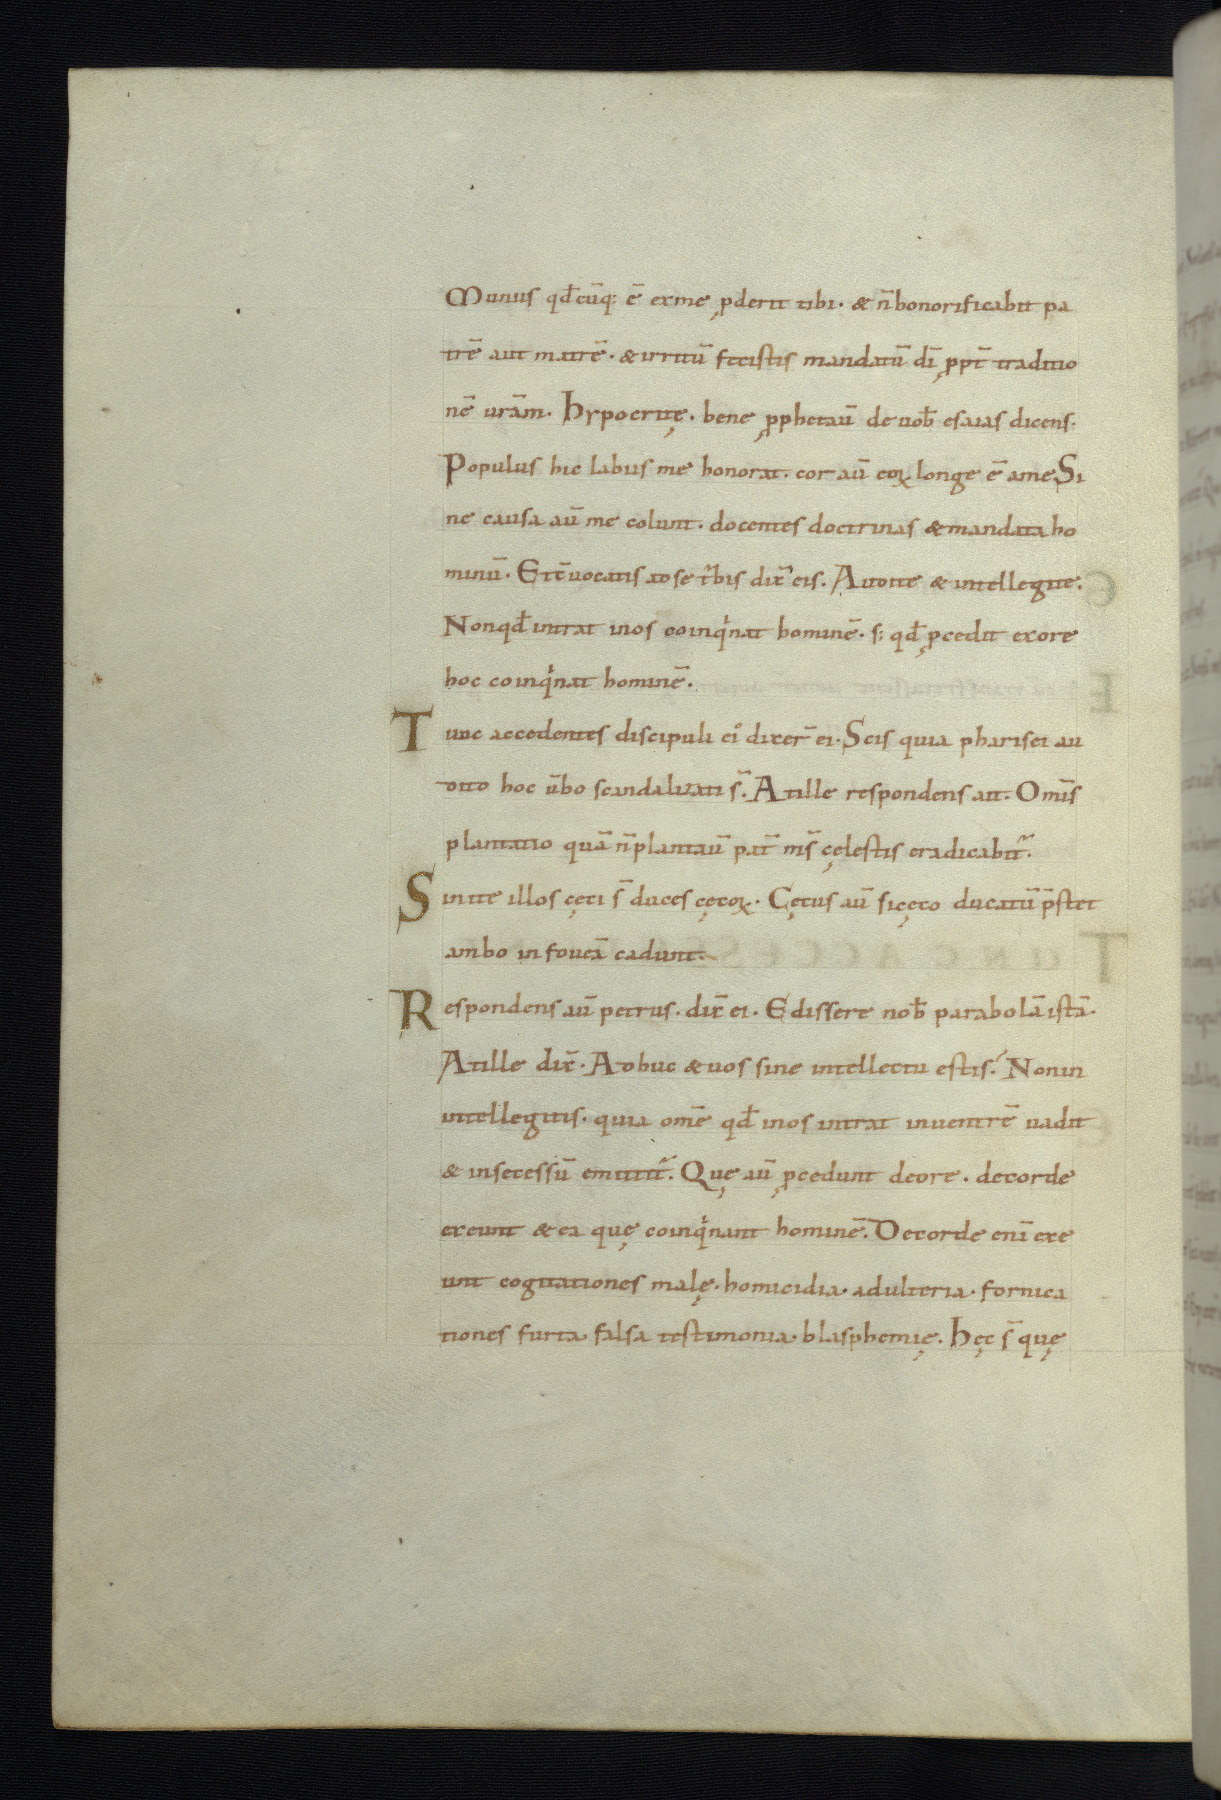 Munus qd̄cūq; ē exme ꝓderit tibi · & n̄honorificabit pa
trē aut matrē · & irritū fecistis mandatū dī ꝓpt̄ traditio
nē urām · hypocritę · bene ꝓphetaū de uob̄ esaias dicens ·
Populus hic labiis me honorat · cor aū eoꝝ longe ē ame Si
ne causa aū me colunt · docentes doctrinas & mandata ho
minū · Etc̄uocatis adse t̄bis dix̄ eis · Audite & intellegite ·
Nonqd̄ intrat inos coinqͥnat hominē · s; qd̄ ꝓcedit exore
hoc coinqͥnat hominē ·
Tunc accedentes discipuli eiꝰ dixer̄ ei · Scis quia pharisei au
dito hoc ūbo scandalizati s̄ · At ille respondens ait · Omīs
plantatio quā n̄plantaū pat̄ mīs cęlestis eradicabit̄ ·
Sinite illos cęci s̄ duces cęcoꝝ · Cęcus aū si cęco ducatū p̄stet
ambo in foueā cadunt ·
Respondens aū petrus · dix̄ ei · Edissere nob̄ parabolā istā ·
At ille dix̄ · Adhuc & uos sine intellectu estis? Nonin
intellegitis · quia omē qd̄ inos intrat inuentrē uadit
& insecessū emittit̄ · Quę aū ꝓcedunt deore · decorde
exeunt & ea quę coinqͥnant hominē · Decorde enī exe
unt cogitationes malę · homicidia · adulteria · fornica
tiones furta · falsa testimonia · blasphemię · hęc s̄ quę